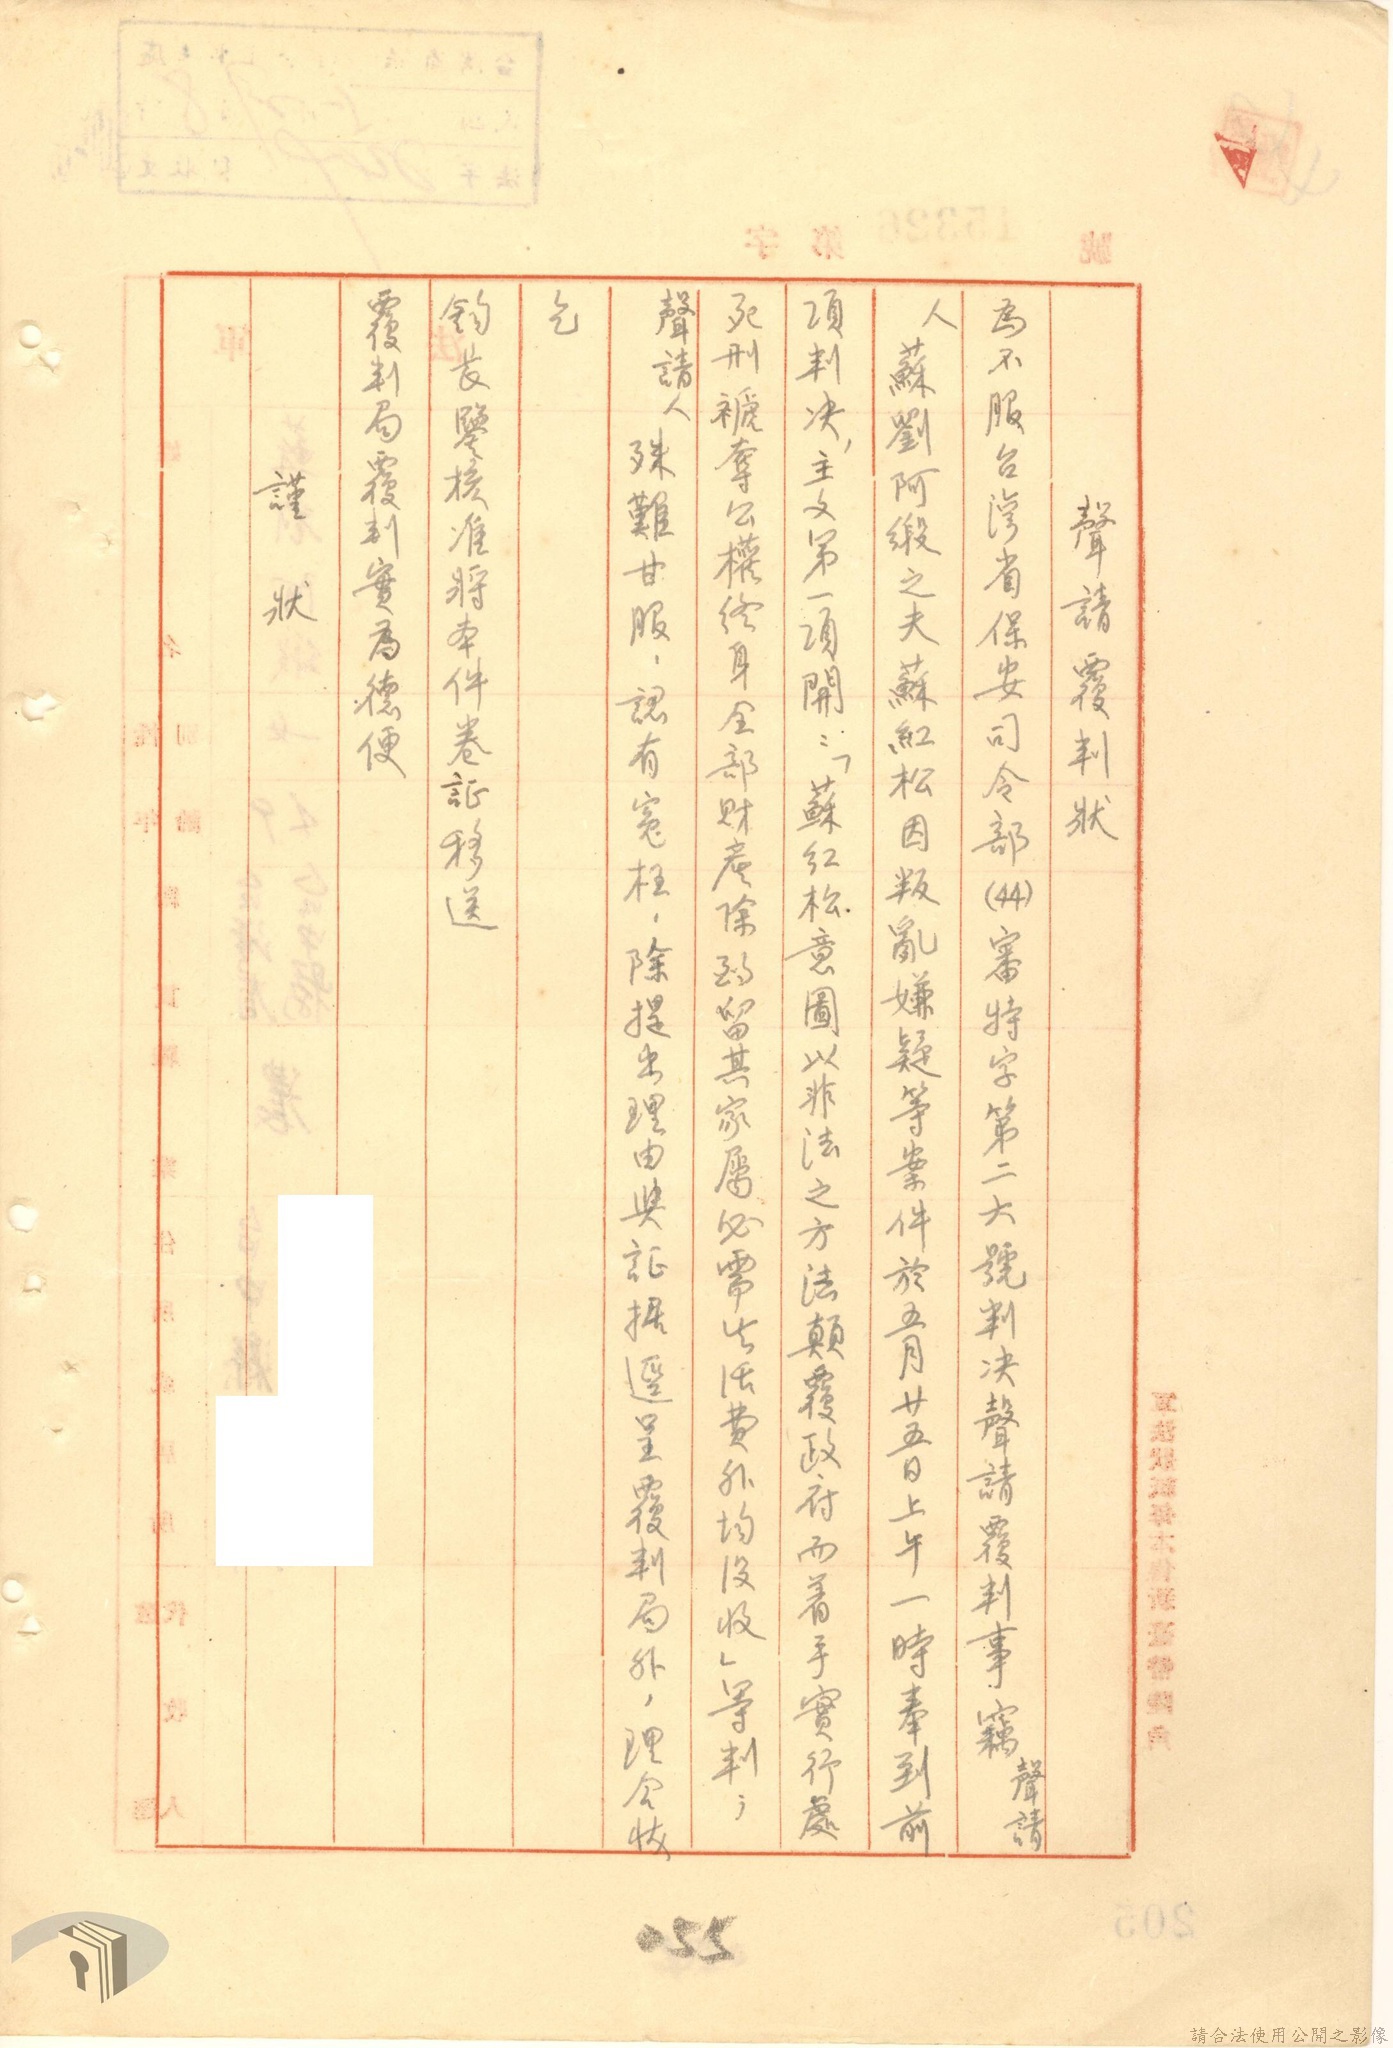 聲請覆判狀
為不服台灣省保安司令部(44)審特字第二六號判決聲請覆判事竊聲請
人蘇劉阿緞之夫蘇紅松因叛亂嫌疑等案件於五月廿五日上午一時奉到前
項判決,主文第一項開:「蘇紅松意圖以非法之方法顛覆政府而着手實行處
死刑褫奪公權終身全部財產除酌留其家屬必需生活費外均沒收」等判,
聲請人殊難甘服,認有冤枉,除提出理由與証据逕呈覆判局外,理合狀
乞
鈞長鑒核准將本件卷証移送
覆判局覆判實為德便
謹狀
055
請合法使用公開之影像